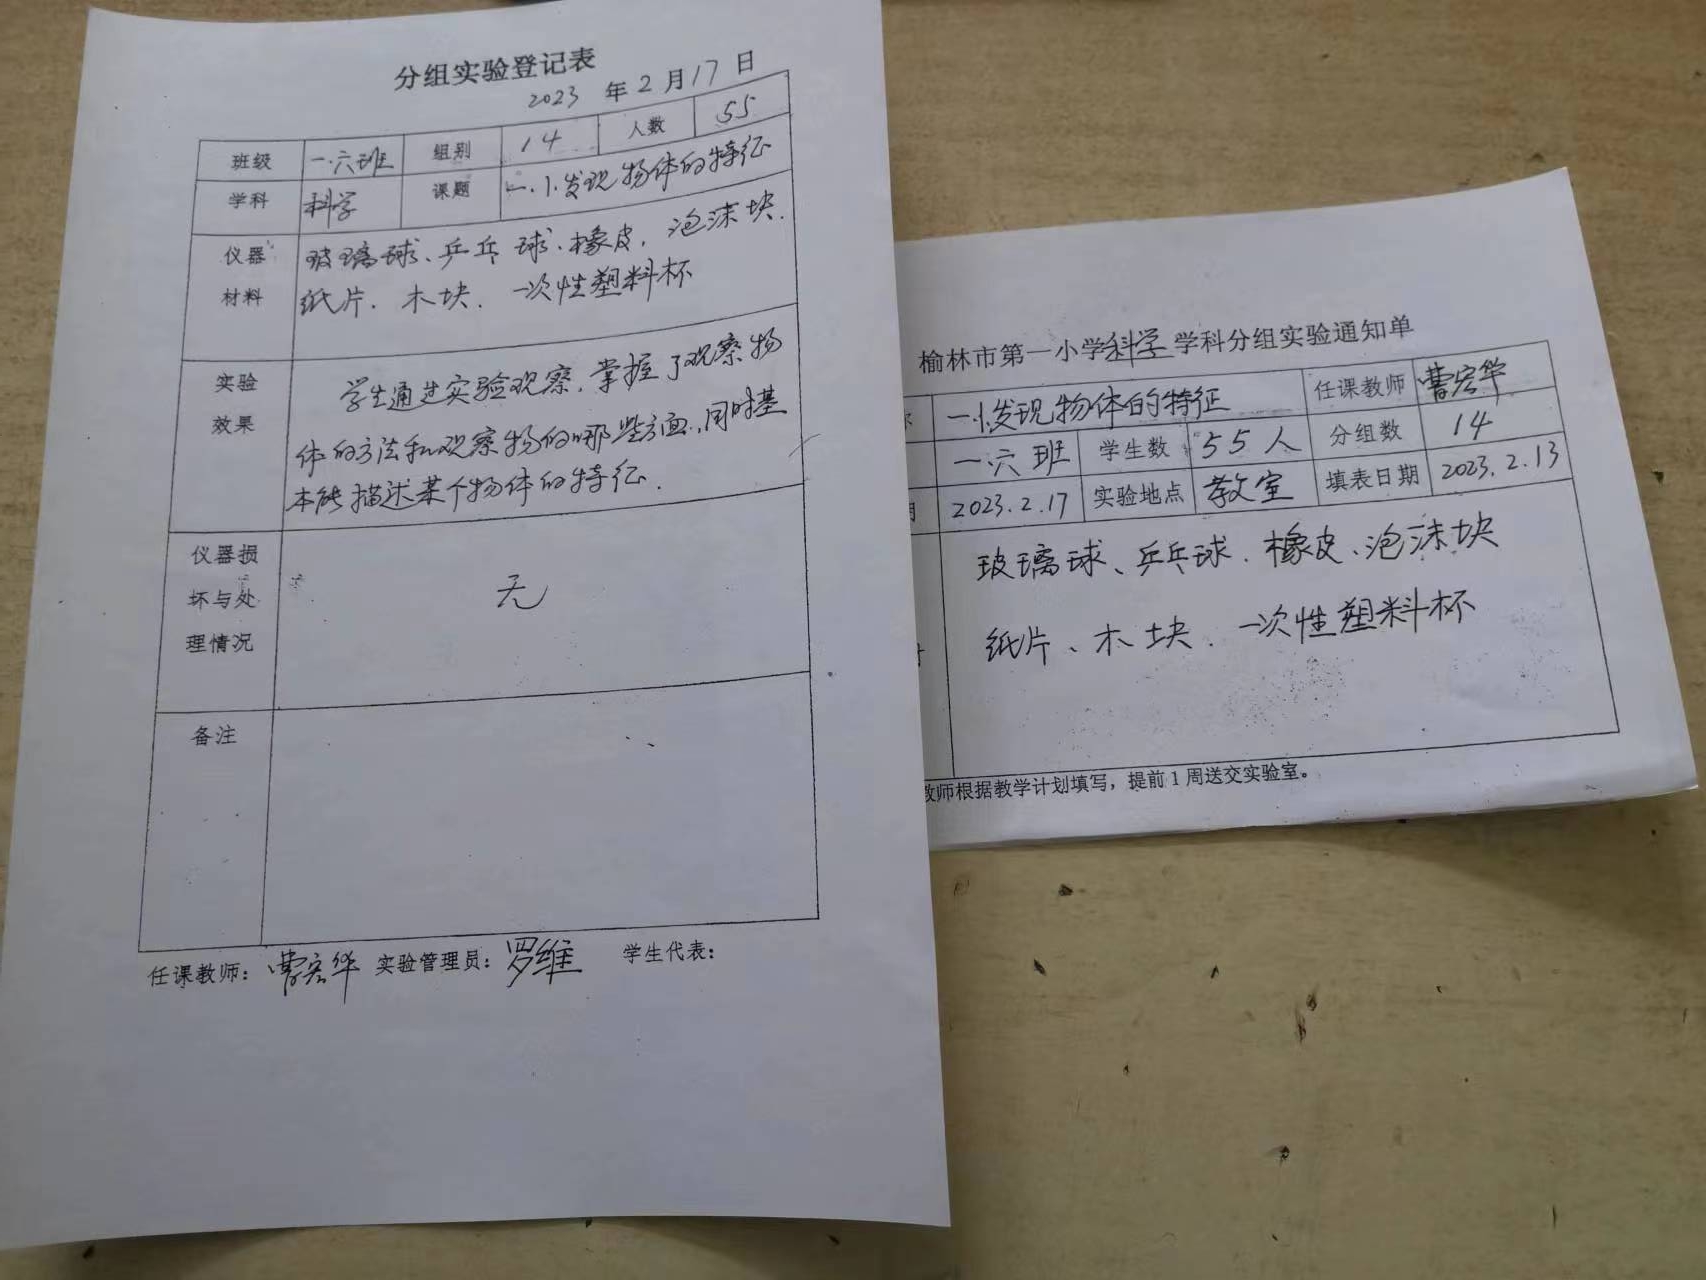 分组实验登记表
2023 年 2 月 17 日
班级 一.六班 组别 14 人数 55
学科 科学 课题 一.1.发现物体的特征
仪器 玻璃球、乒乓球、橡皮、泡沫块.
材料 纸片、木块、一次性塑料杯
实验 学生通过实验观察,掌握了观察物
效果 体的方法和观察物的哪些方面,同时基
本能描述某个物体的特征.
仪器损
坏与处 无
理情况
备注
任课教师: 曹宏华 实验管理员: 罗维 学生代表:
榆林市第一小学科学学科分组实验通知单
一.1.发现物体的特征 任课教师 曹宏华
一.六班 学生数 55人 分组数 14
2023.2.17 实验地点 教室 填表日期 2023.2.13
玻璃球、乒乓球、橡皮、泡沫块
纸片、木块、一次性塑料杯
教师根据教学计划填写,提前1周送交实验室。